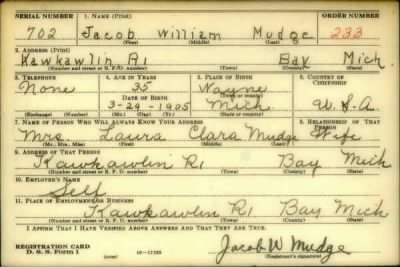 SERIAL NUMBER 1. NAME (Print) ORDER NUMBER
702 Jacob William Mudge 233
(First) (Middle) (Last)
2. ADDRESS (Print)
Kawkawlin R1 Bay Mich.
(Number and street or R. F. D. number) (Town) (County) (State)
3. TELEPHONE 4. AGE IN YEARS 5. PLACE OF BIRTH 6. COUNTRY OF CITIZENSHIP
None 35 Wayne
DATE OF BIRTH (Town or county)
3-29-1905 Mich U.S.A
(Exchange) (Number) (Mo.) (Day) (Yr.) (State or country)
7. NAME OF PERSON WHO WILL ALWAYS KNOW YOUR ADDRESS 8. RELATIONSHIP OF THAT PERSON
Mrs. Laura Clara Mudge Wife
(Mr., Mrs., Miss) (First) (Middle) (Last)
9. ADDRESS OF THAT PERSON
Kawkawlin R1 Bay Mich
(Number and street or R. F. D. number) (Town) (County) (State)
10. EMPLOYER'S NAME
Self
11. PLACE OF EMPLOYMENT OR BUSINESS
Kawkawlin R1 Bay Mich
(Number and street or R. F. D. number) (Town) (County) (State)
I AFFIRM THAT I HAVE VERIFIED ABOVE ANSWERS AND THAT THEY ARE TRUE.
REGISTRATION CARD
D. S. S. Form 1 (over) 16—17105 Jacob W Mudge
(Registrant's signature)